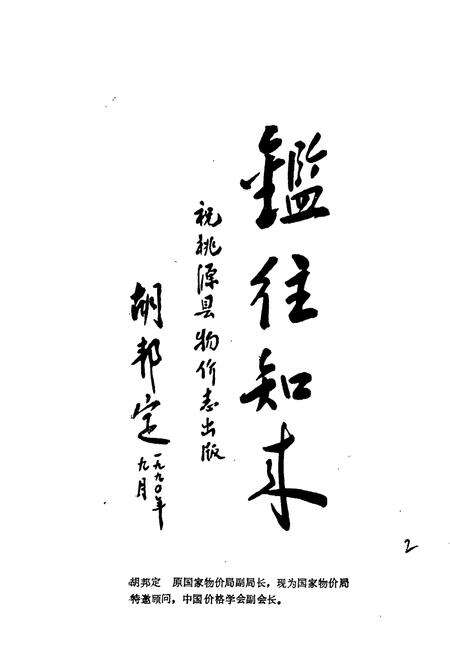 鑑往知来
祝桃源县物价志出版
胡邦定
一九九〇年
九月
2
胡邦定　原国家物价局副局长，现为国家物价局
特邀顾问，中国价格学会副会长。